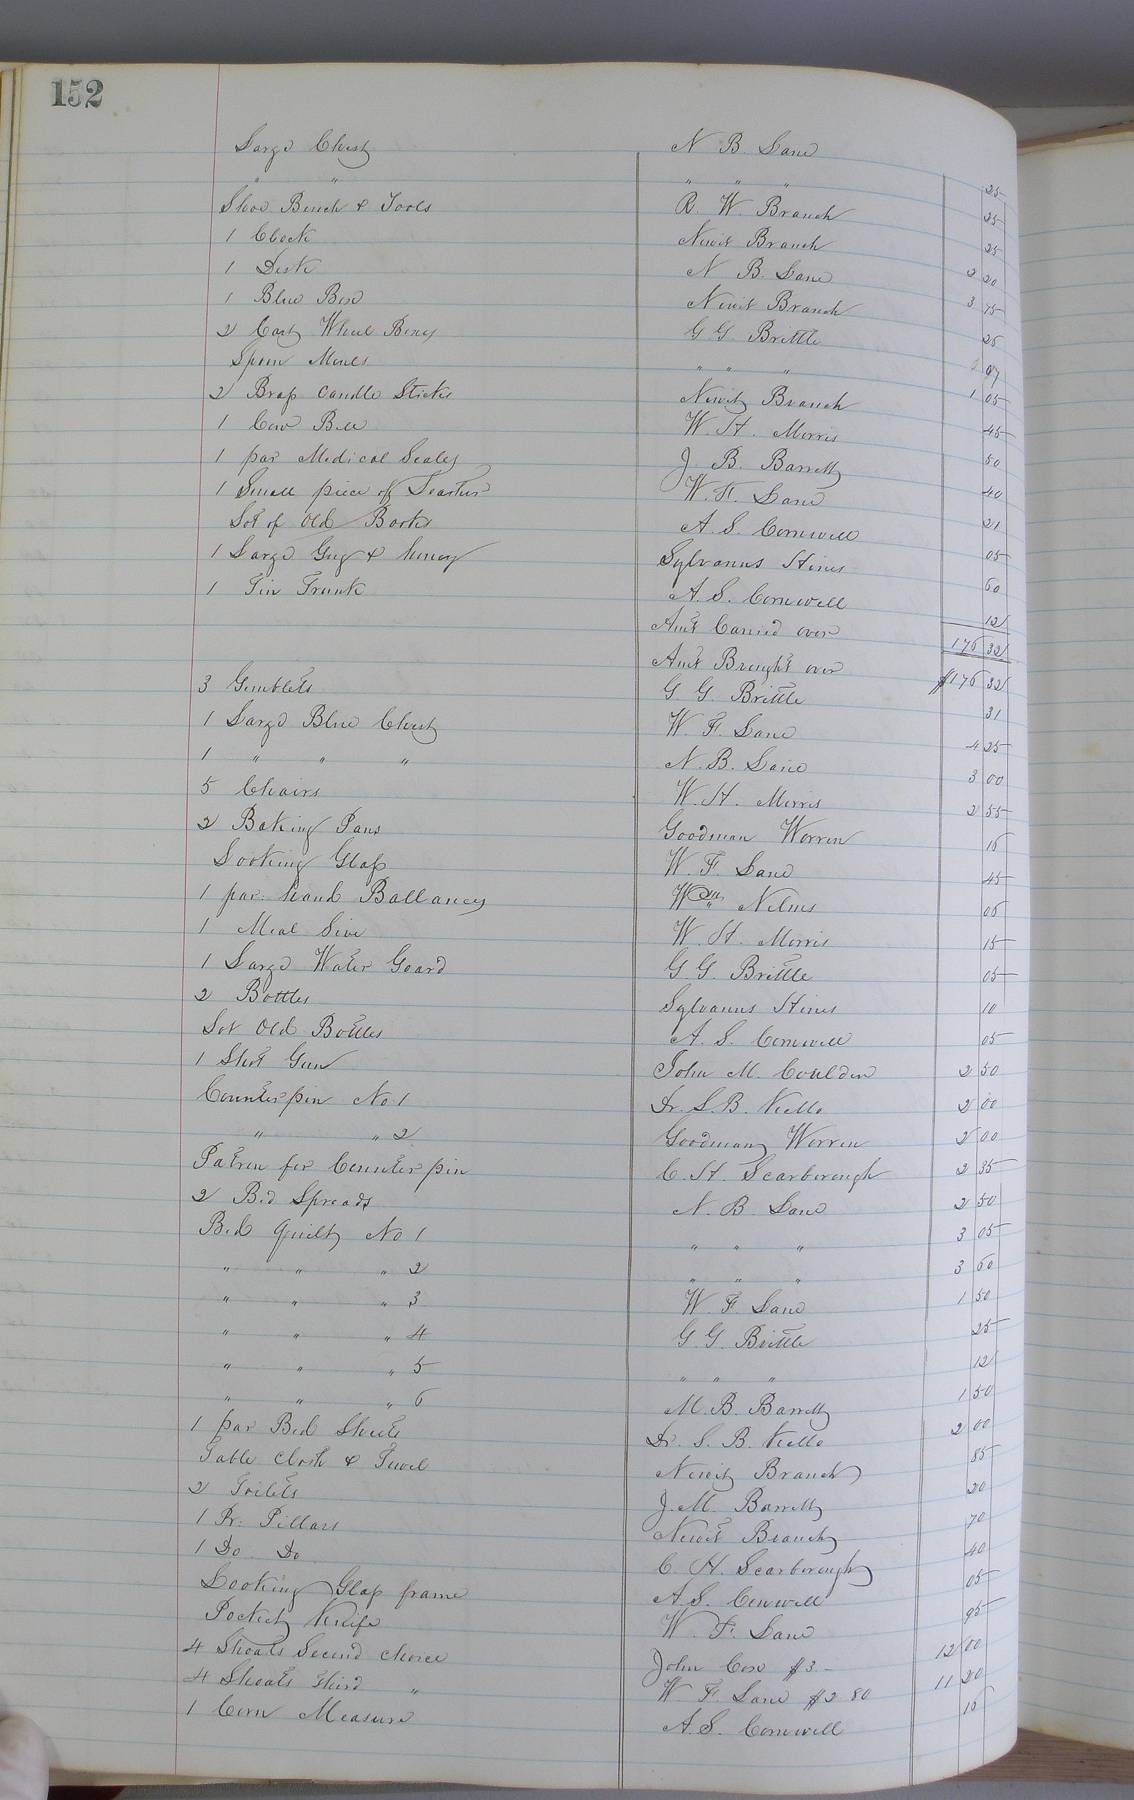 152
Large Chest N B. Lane 25
" " " " " 25
Shoe Bench & Tools R W. Branch 25
1 Clock Newit Branch 2 20
1 Desk N B. Lane 3 75
1 Blue Box Newit Branch 25
2 Cart Wheel Boxes G. G. Brittle 07
Spoon " " " 1 05
2 Brass Candle Sticks Newit Branch 45
1 Cow Bell W. H. Morris 50
1 par Medical Scales J B. Barrett 40
1 Small piece of Leather W. F. Lane 21
Lot of Old Books A. S. Cornwell 05
1 Large Gug & honey Sylvanus Hines 60
1 Tin Trunk A. S. Cornwell 12
Amt Carried over 176 32
Amt Brought over $176 32
3 Gimblets G G. Brittle 31
1 Large Blue Chest W. F. Lane 4 25
1 " " " N. B. Lane 3 00
5 Chairs W. H. Morris 2 55
2 Baking Pans Goodman Worren 15
Looking Glass W. F. Lane 45
1 par hand Ballances Wm Nelms 05
1 Meal Sive W. H. Morris 15
1 Large Water Goard G. G. Brittle 05
2 Bottles Sylvanus Hines 10
Lot Old Bottles A. S. Cornwell 05
1 Shot Gun John M. Coulden 2 50
Counterpin No. 1 Dr. S. B. Kello 2 00
" " 2 Goodman Worren 2 00
Patren for Counterpin C. H. Scarborough 2 35
2 Bed Spreads N. B. Lane 2 50
Bed quilt No 1 " " " 3 05
" " " 2 " " " 3 60
" " " 3 W F Lane 1 50
" " " 4 G. G. Brittle 25
" " " 5 " " " 12
" " " 6 M. B. Barrett 1 50
1 par Bed Sheets Dr. S. B. Kello 2 00
Table Cloth & Towel Newit Branch 85
2 Toilets J. M. Barrett 20
1 Pr. Pillars Newit Branch 70
1 Do Do C. H. Scarborough 40
Looking Glass frame A. S. Cornwell 05
Pocket Knife W. F. Lane 95
4 Shoats Second choice John Cox $3 - 12 00
4 Shoats third " W F Lane $2 80 11 20
1 Corn Measure A. S. Cornwell 15